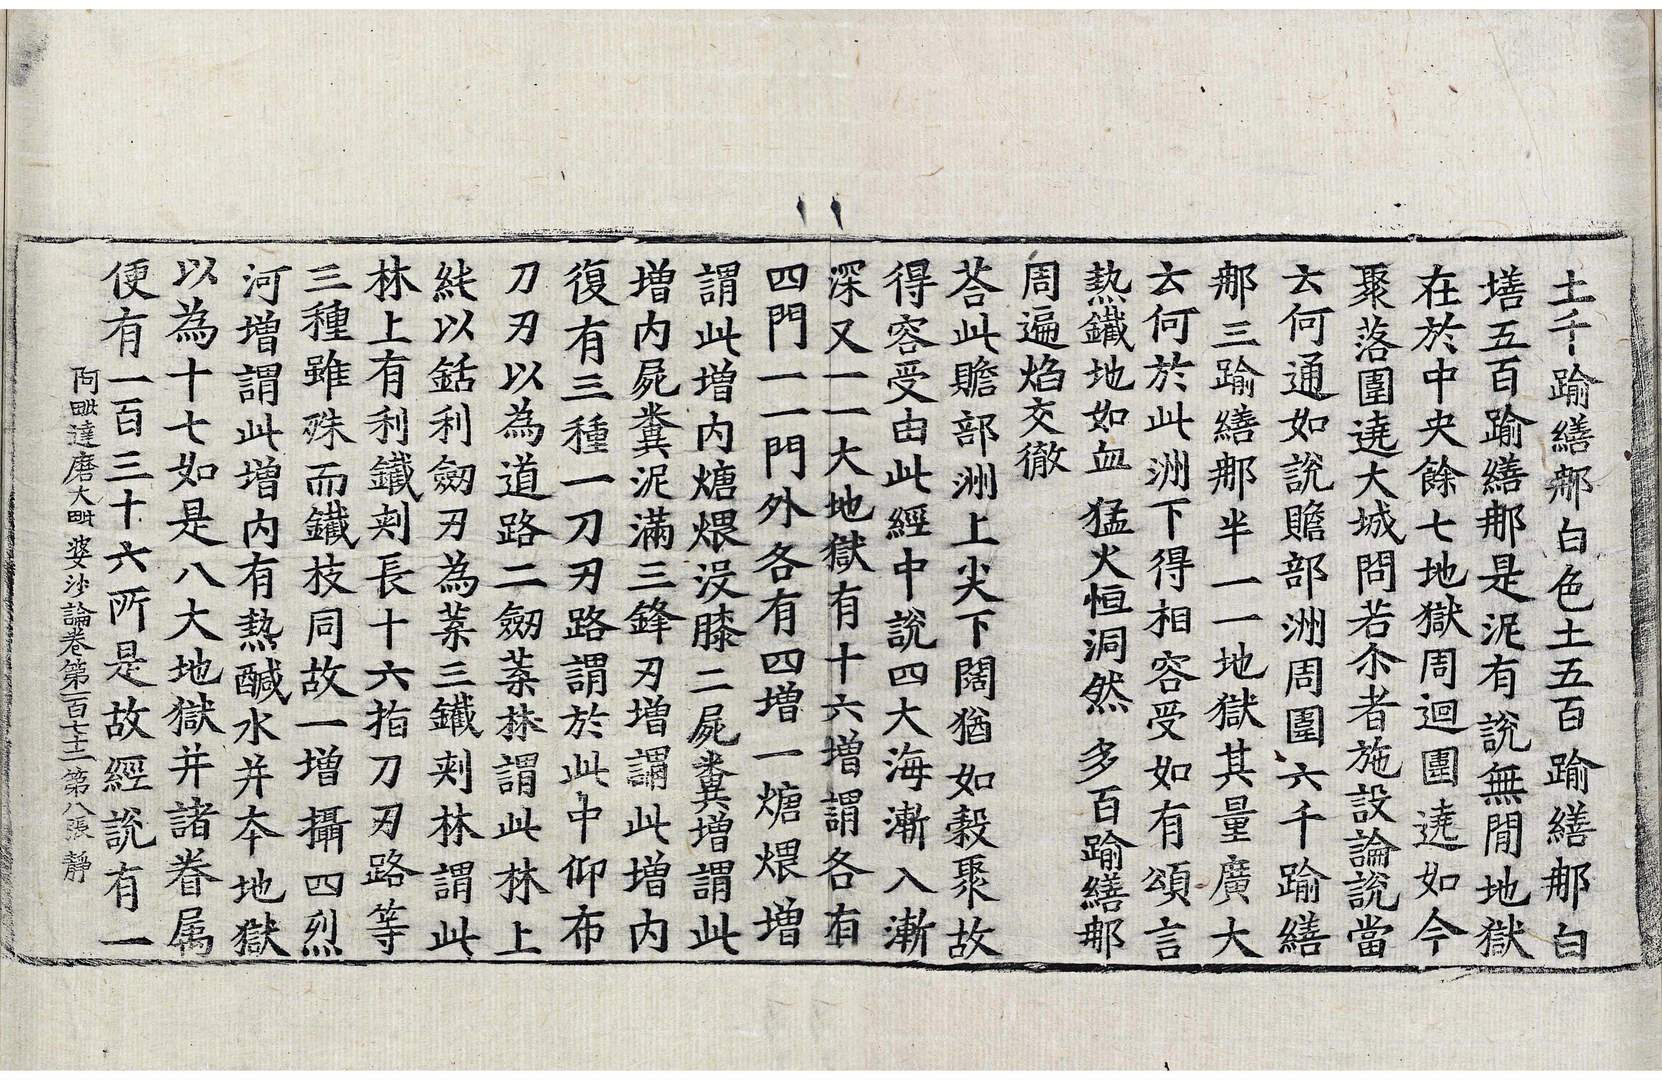 土千踰繕那白色土五百踰繕那白
墡五百踰繕那是泥有說無間地獄
在於中央餘七地獄周迴圍遶如今
聚落圍遶大城問若尒者施設論說當
云何通如說贍部洲周圍六千踰繕
那三踰繕那半一一地獄其量廣大
云何於此洲下得相容受如有頌言
熱鐵地如血 猛火恒洞然 多百踰繕那
周遍焰交徹
荅此贍部洲上尖下闊猶如穀聚故
得容受由此經中說四大海漸入漸
深又一一大地獄有十六增謂各有
四門一一門外各有四增一煻煨增
謂此增內煻煨沒膝二屍糞增謂此
增內屍糞泥滿三鋒刃增謂此增內
復有三種一刀刃路謂於此中仰布
刀刃以為道路二劒葉林謂此林上
純以銛利劒刃為葉三鐵刺林謂此
林上有利鐵刺長十六指刀刃路等
三種雖殊而鐵杖同故一增攝四烈
河增謂此增內有熱鹹水并本地獄
以為十七如是八大地獄并諸眷属
便有一百三十六所是故經說有一
阿毗達磨大毗婆沙論卷第一百七十二 第八張 靜